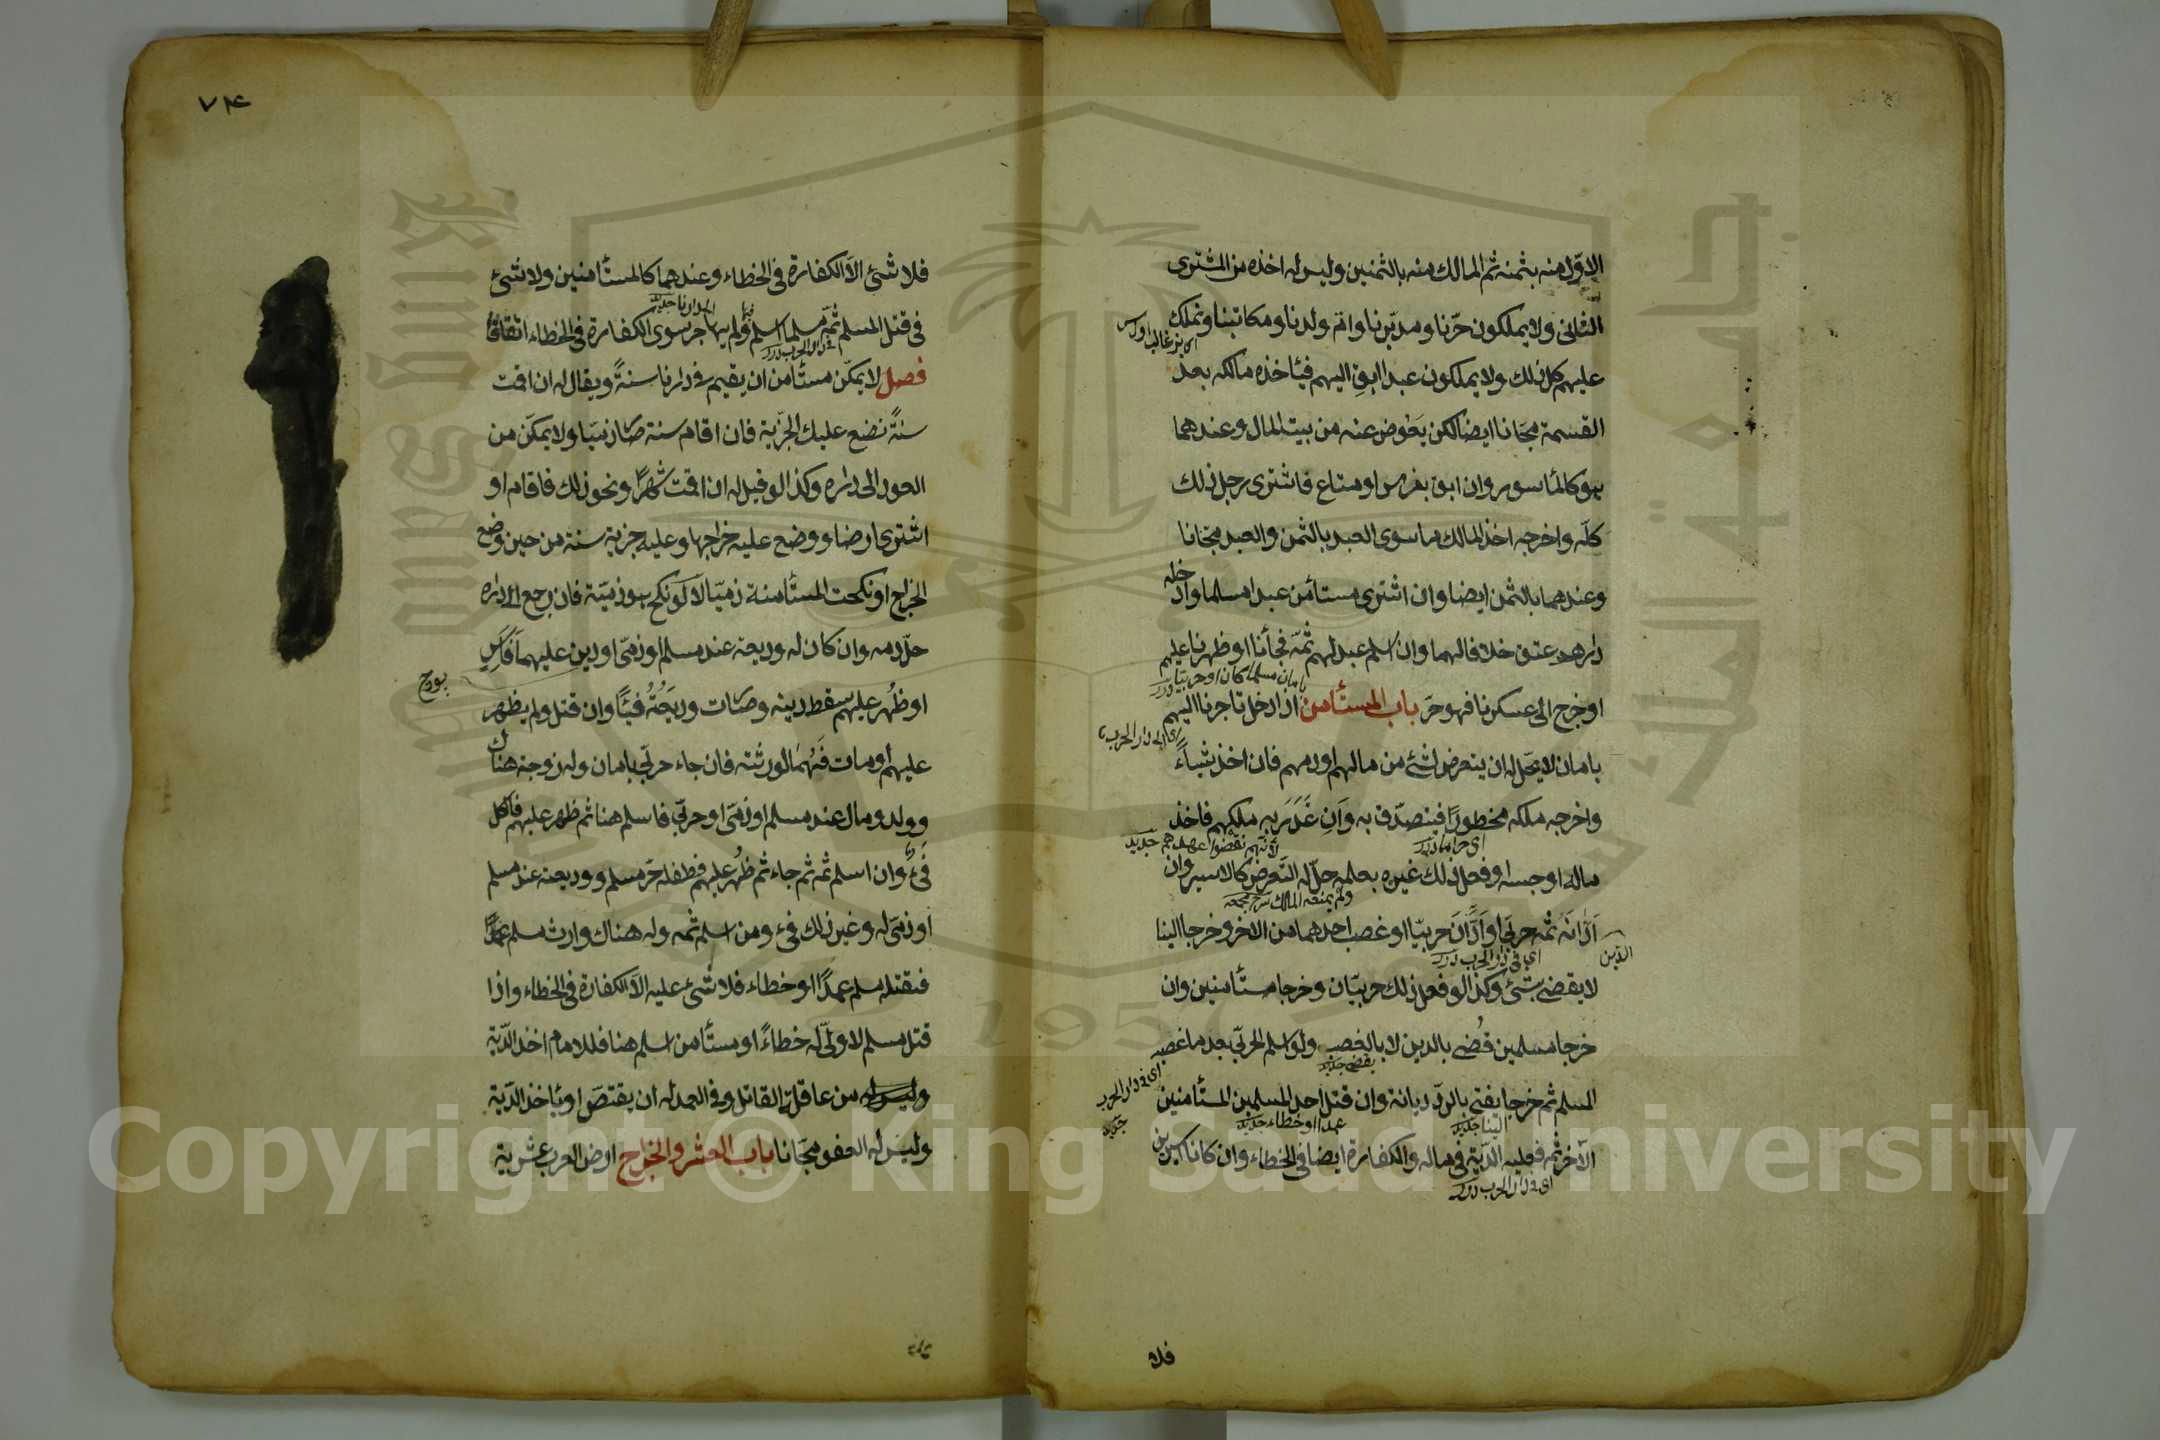 الاول منه بثمنه ثم المالك منه بالثمنين وليس له اخذه من المشترى
الثانى ولا يملكون حرّنا ومدبّرنا وام ولدنا ومكاتبنا ونملك
عليهم كل ذلك ولا يملكون عبدا ابق اليهم فيأخذه مالكه بعد
القسمة مجانا ايضا لكن يعوض عنه من بيت المال وعندهما
هو كالمأسور وان ابق بفرس او متاع فاشترى رجل ذلك
كلّه واخرجه اخذ المالك ما سوى العبد بالثمن والعبد مجانا
وعندهما بالثمن ايضا وان اشترى مستأمن عبدا مسلما وادخله
دارهم عتق خلافا لهما وان اسلم عبد لهم ثمّه فجأنا او ظهرنا عليهم
بامان مسلما كان او حربيا درر
او خرج الى عسكرنا فهو حرّ باب المستأمن اذا دخل تاجرنا اليهم
اى الى دار الحرب
بامان لا يحل له ان يتعرض لشئ من مالهم او دمهم فان اخذ شيأً
واخرجه ملكه محظورًا فيتصدّق به وان غدر به ملكهم فاخذ
اى حراما درر
لانهم نقضوا عهدهم
ماله او حبسه او فعل ذلك غيره بعلمه حلّ له التعرض كالاسير وان
ولم يمنعه المالك
ادانه ثمه حربى او ادان حربيّا او غصب احدهما من الاخر وخرجا الينا
الدين
اى فى دار الحرب درر
لا يقضى بشئ وكذا لو فعل ذلك حربيّان وخرجا مستأمنين وان
خرجا مسلمين قُضى بالدين لا بالغصب ولو اسلم الحربىّ بعد ما غصبه
اى فى دار الحرب
المسلم ثم خرجا يفتى بالردّ ديانة وان قتل احد المسلمين المستأمنين
الينا
عمدا او خطاء
الآخر ثمه فعليه الديّة فى ماله والكفارة ايضا فى الخطاء وان كانا اسيرين
اى فى دار الحرب درر
فلا
٧٤
فلا شئ الاّ الكفارة فى الخطاء وعندهما كالمستأمنين ولا شئ
فى قتل المسلم ثمّ مسلما اسلم ولم يهاجر سوى الكفارة فى الخطاء اتفاقًا
فى دار الحرب درر
فصل لا يمكّن مستأمن ان يقيم فى دارنا سنةً ويقال له ان اقمت
سنةً نضع عليك الجزية فان اقام سنة صار ذميّا ولا يمكّن من
العود الى داره وكذا لو قيل له ان اقمت شهرًا ونحو ذلك فاقام او
اشترى ارضا ووضع عليه خراجها وعليه جزية سنة من حين وضع
الخراج او نكحت المستأمنة ذميّا لا لو نكح هو ذميّة فان رجع الى داره
حلّ دمه وان كان له وديعة عند مسلم او ذمىّ او دين عليهما فاسر
او ظُهر عليهم سقط دينه وصارت وديعتُه فيئًا وان قتل ولم يظهر
عليهم او مات فهما لورثته فان جاء حربىّ بامان وله زوجة هناك
وولد ومال عند مسلم او ذمىّ او حربىّ فاسلم هنا ثم ظهر عليهم فالكل
فئ وان اسلم ثمه ثم جاء ثم ظُهر عليهم فطفله حرّ مسلم ووديعته عند مسلم
او ذمىّ له وغير ذلك فئ ومن اسلم ثمه وله هناك وارث مسلم
فقتله مسلم عمدًا او خطاء فلا شئ عليه الاّ الكفارة فى الخطاء واذا
قتل مسلم لا ولىّ له خطاءً او مستأمن اسلم هنا فللامام اخذ الدّية
من عاقلة القاتل وفى العمد له ان يقتصّ او يأخذ الدّية
وليس له العفو مجّانا باب العشر والخراج ارض العرب عشرية
جامعة الملك سعود
King Saud University
1957
Copyright © King Saud University